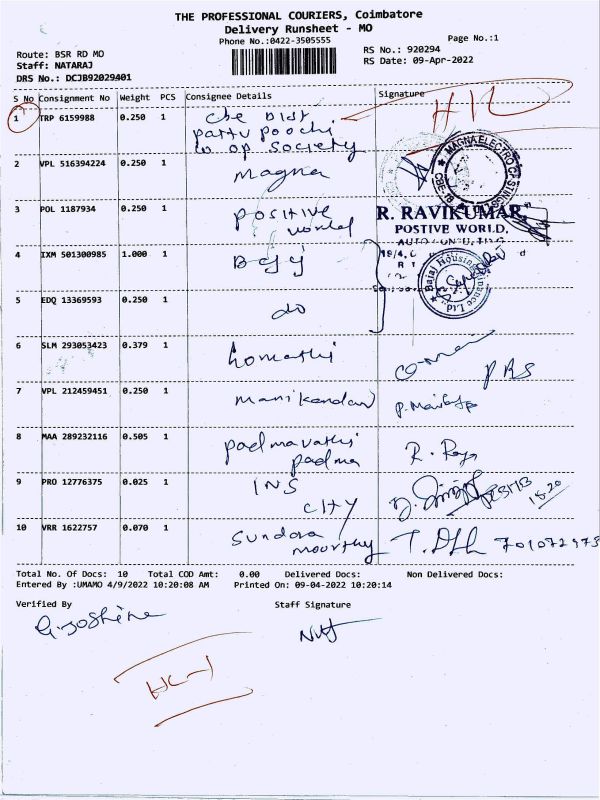 THE PROFESSIONAL COURIERS, Coimbatore
Delivery Runsheet - MO
Phone No.:0422-3505555
Page No.:1
Route: BSR RD MO
RS No.: 920294
Staff: NATARAJ
RS Date: 09-Apr-2022
DRS No.: DCJB92029401
S No Consignment No Weight PCS Consignee Details Signature
1 TRP 6159988 0.250 1 Cbe Dist
pattu poochi
co op Society
2 VPL 516394224 0.250 1 Magna
MAGNA ELECTRO CASTINGS
3 POL 1187934 0.250 1 positive
world
R. RAVIKUMAR,
POSTIVE WORLD,
4 IXM 501300985 1.000 1 Bajaj
Bajaj Housing Finance Ltd.
5 EDQ 13369593 0.250 1 do
6 SLM 293053423 0.379 1 Gomathi
PRS
7 VPL 212459451 0.250 1 Manikandan
8 MAA 289232116 0.505 1 padmavathi
padma
R. Raja
9 PRO 12776375 0.025 1 INS
CITY
15.20
10 VRR 1622757 0.070 1 Sundara
moorthy
701072973
Total No. Of Docs: 10 Total COD Amt: 0.00 Delivered Docs: Non Delivered Docs:
Entered By :UMAMO 4/9/2022 10:20:08 AM Printed On: 09-04-2022 10:20:14
Verified By Staff Signature
G. Joshine